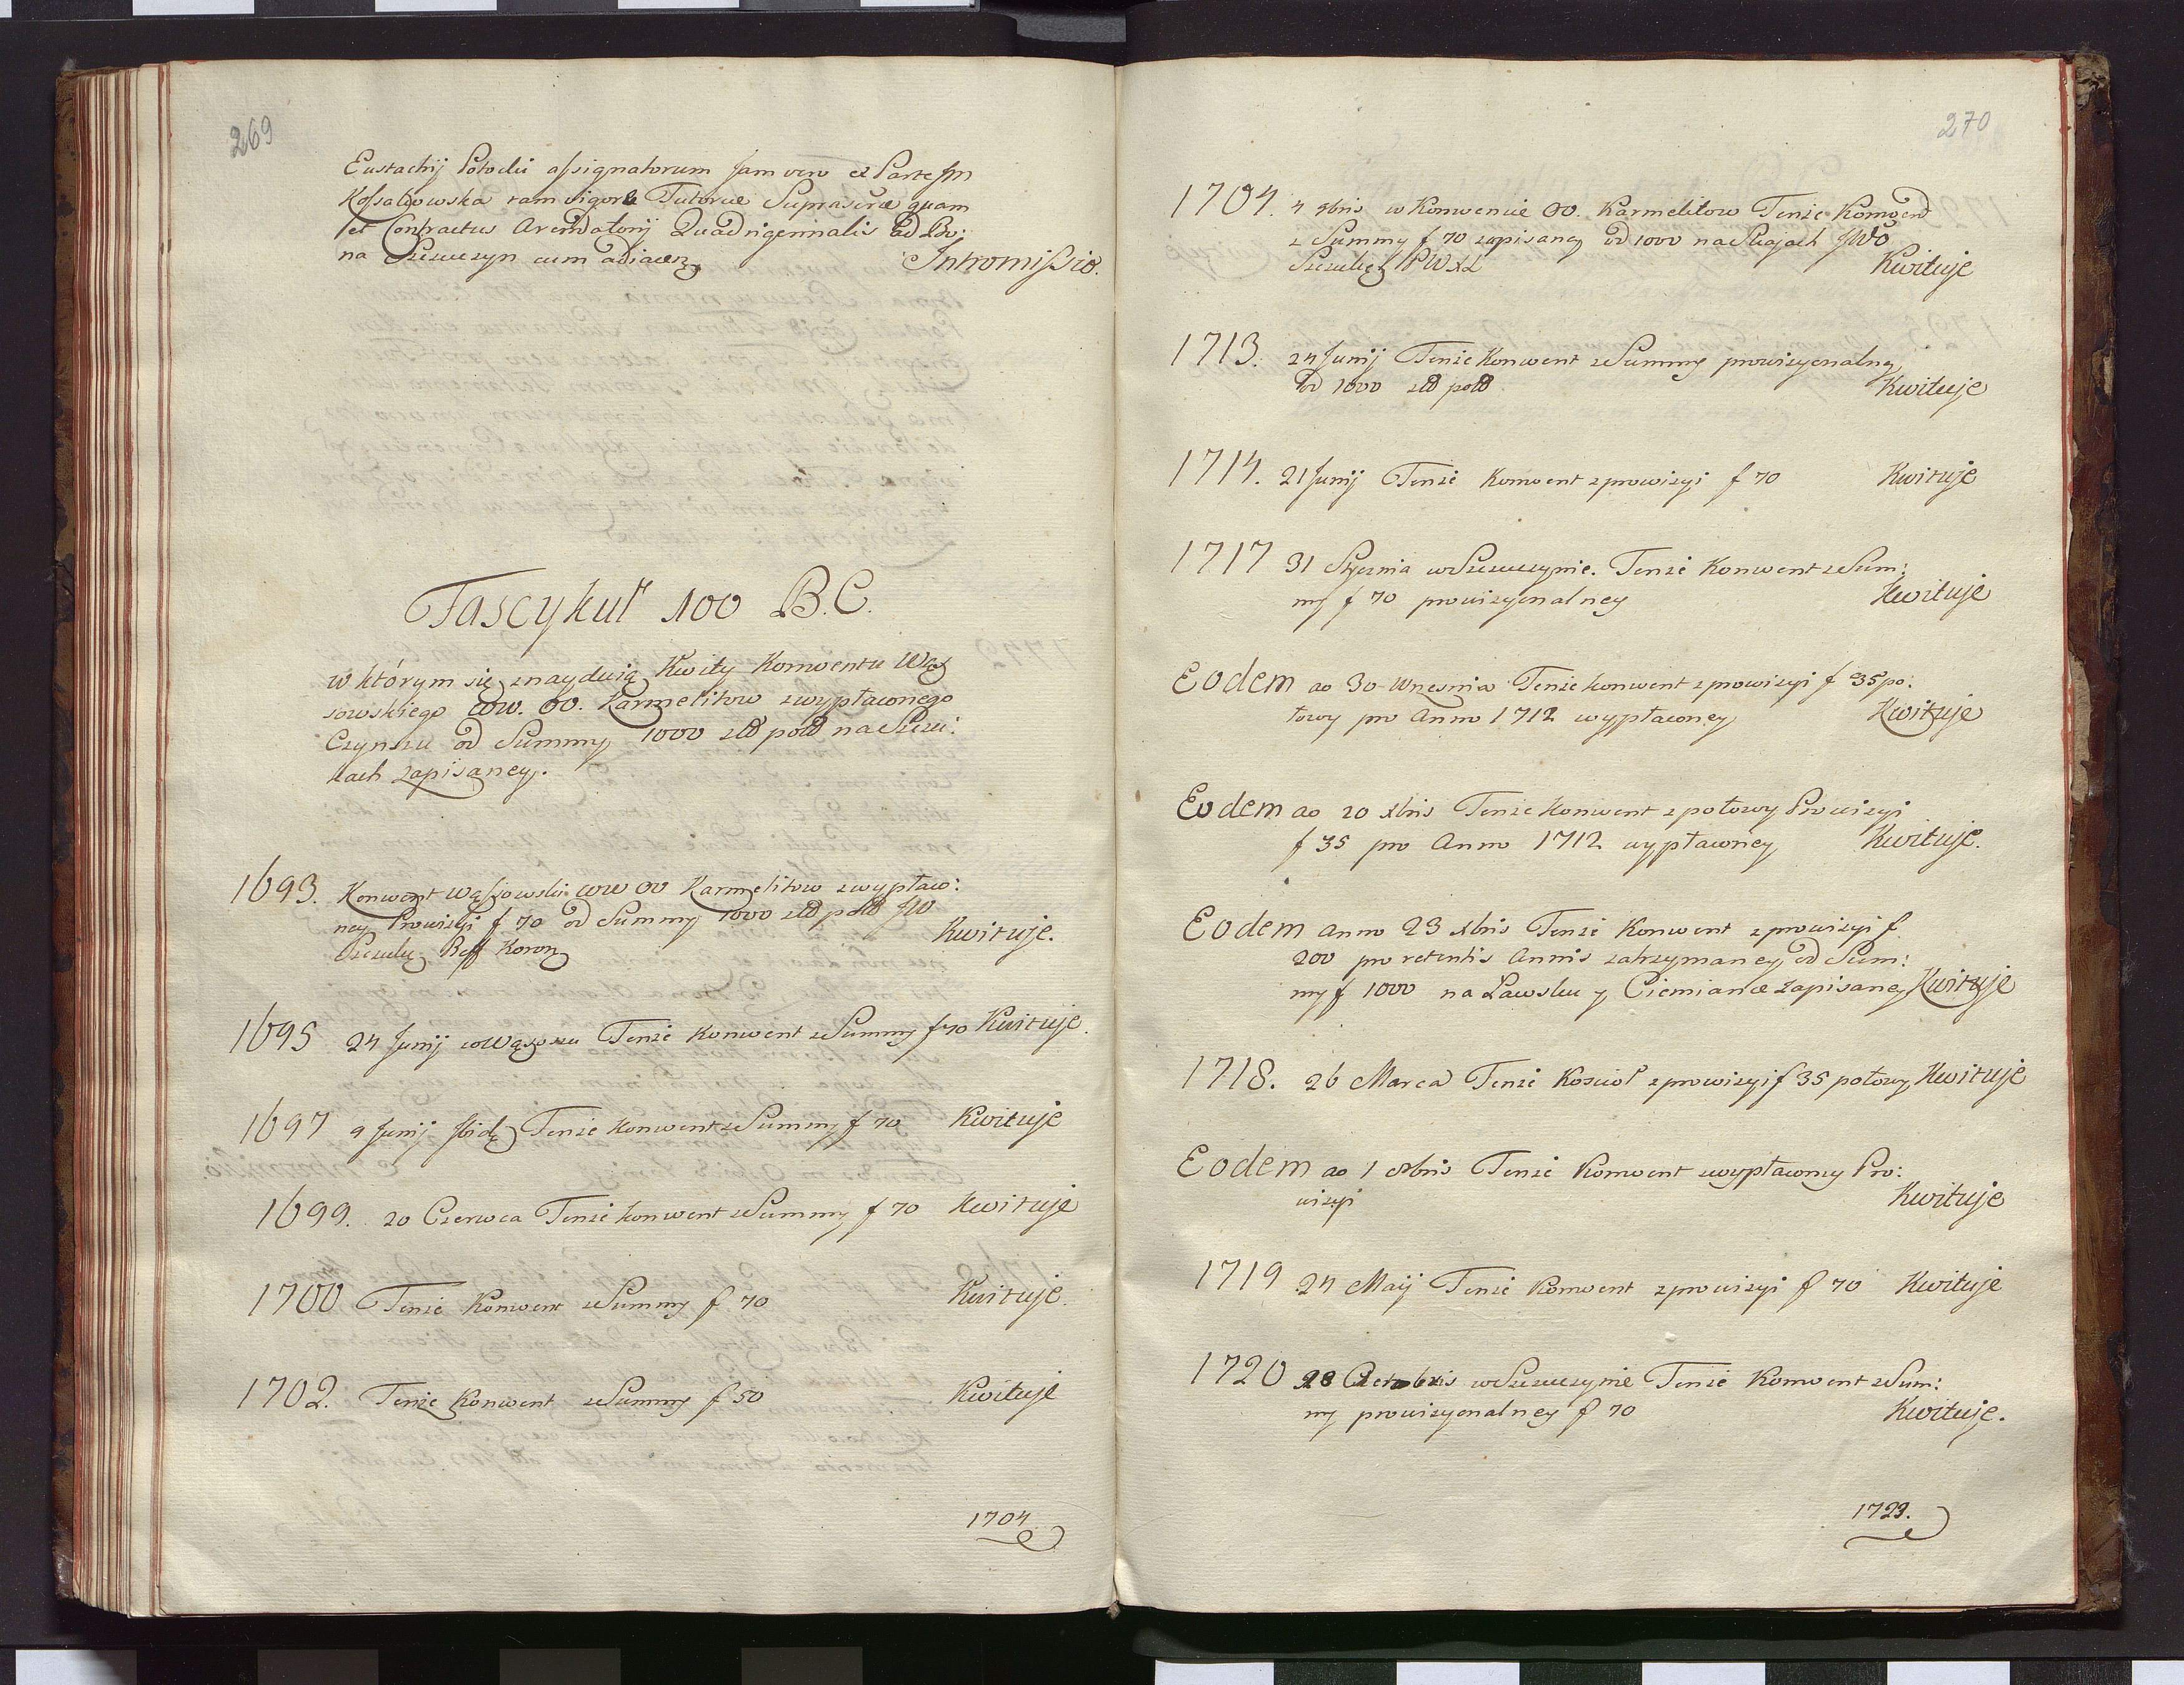 269
Eustachij Potocki assignatorum Jam vero ex Parte Jm
Kossakowska tam vigore Tutoriae Suprascrae quam
et Contractus Arendatorij Quadrigennialis ad Bo:
na Szczuczyn cum adiacen Intromissio.
Fascykuł 100 B.C.
w którym się znayduią Kwity Konwentu Wąs
sowskiego WW. OO. Karmelitow z wypłaconego
Czynszu od Summy 1000 zło pols na Szczu:
kach zapisaney.
1693. Konwent Wąssowski WW OO Karmelitow z wypłaco:
ney Prowizyi f 70 od Summy 1000 zło pols JW
Szczuką Reff Koron Kwituje.
1695 24 Junij w Wąsoszu Tenże Konwent z Summy f 70 Kwituje.
1697 9 Junij Ibid Tenże Konwent z Summy f 70 Kwituje
1699. 20 Czerwca Tenże Konwent z Summy f 70 Kwituje
1700 Tenże Konwent z Summy f 70 Kwituje.
1702. Tenże Konwent z Summy f 50 Kwituje
1704
270
1704. 4 xbris w Konwencie OO. Karmelitow Tenże Konwent
z Summy f 70 zapisaney od 1000 na JWo
Szczukę PWXL Kwituje
1713. 24 Junij Tenże Konwent z Summy prowizyonalney
od 1000 zło pols Kwituje
1714. 21 Junij Tenże Konwent z prowizyi f 70 Kwituje
1717 31 Stycznia w Szczuczynie. Tenże Konwent z Sum:
my f 70 prowizyonalney Kwituje
Eodem ao 30 Wrzesnia Tenże Konwent z prowizyi f 35 po:
łowy pro Anno 1712 wypłaconey Kwituje
Eodem ao 20 xbris Tenże Konwent z połowy Prowizyi
f 35 pro Anno 1712 wypłaconey Kwituje.
Eodem anno 23 xbris Tenże Konwent z prowizyi f
200 pro retentis Annis zatrzymaney od Sum:
my f 1000 na Ławsku y Ciemiance zapisaney Kwituje
1718. 26 Marca Tenże Kościoł z prowizyi f 35 połowy Kwituje
Eodem ao 1 8bris Tenże Konwent z wypłaconey Pro:
wizyi Kwituje
1719 24 Maij Tenże Konwent z prowizyi f 70 Kwituje
1720 28 Octobris w Szczuczynie Tenże Konwent z Sum:
my prowizyonalney f 70 Kwituje.
1723.